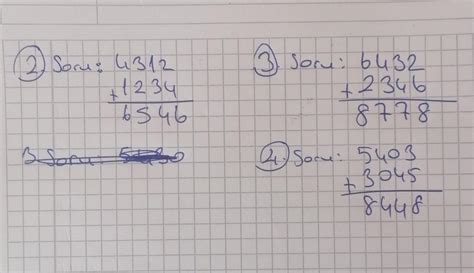 2 Soru: 4312
+ 1234
6546
3 Soru 5
3. Soru: 6432
+ 2346
8778
4. Soru: 5403
+ 3045
8448